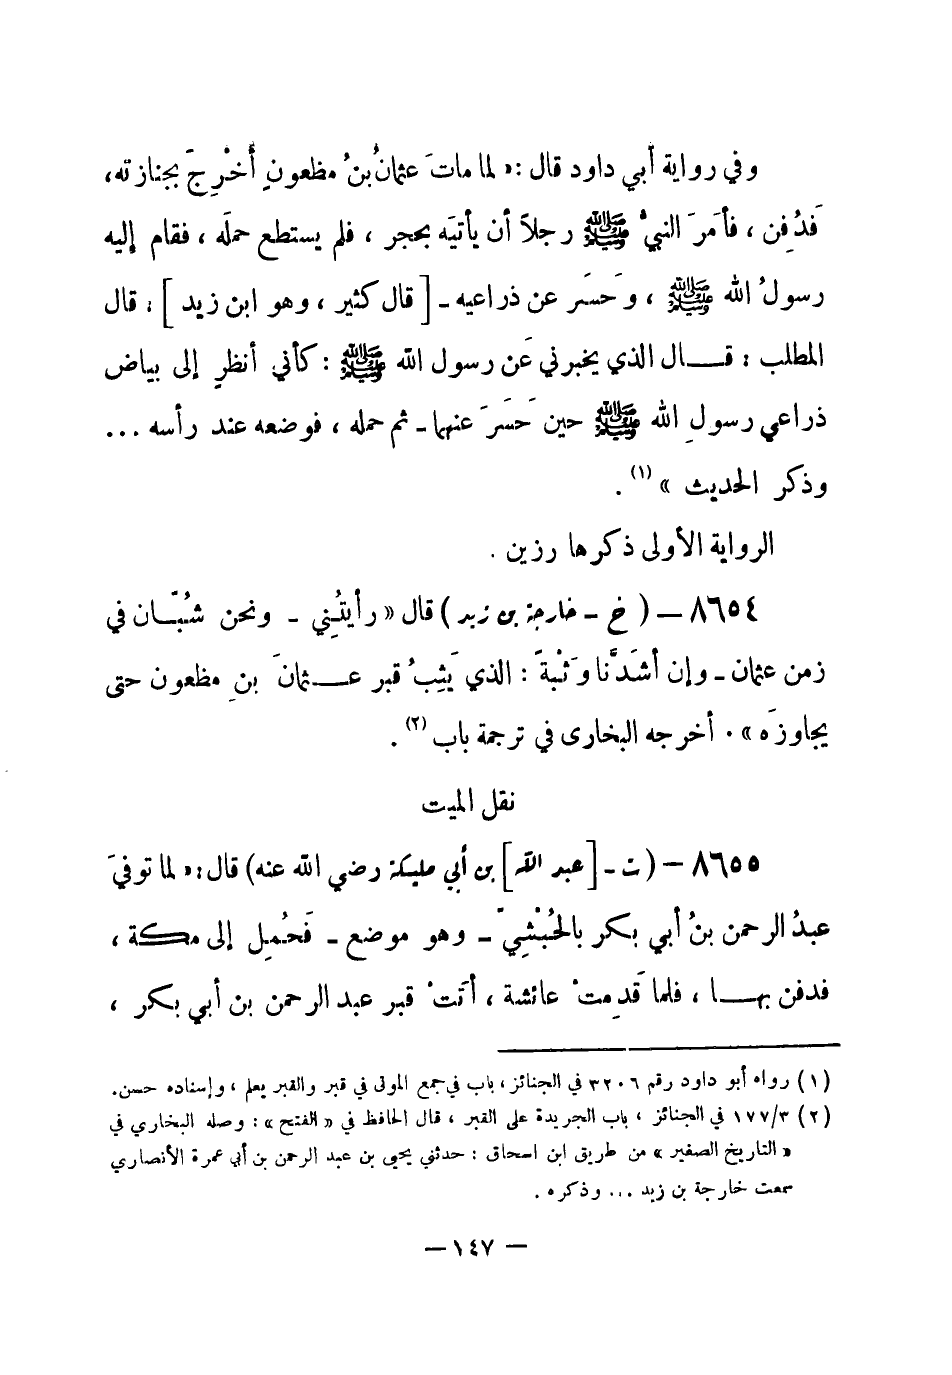 وفي رواية أبي داود قال : « لما ماتَ عثمانُ بنُ مظعونٍ أُخْرِجَ بجنازته،
فَدُفِن ، فأمَرَ النبيُّ ﷺ رجلاً أن يأتيَه بحجر ، فلم يستطع حملَه ، فقام إليه
رسولُ الله ﷺ ، وحَسَر عن ذراعيه ـ [ قال كثير ، وهو ابن زيد ] : قال
المطلب : قـــال الذي يخبرني عَن رسول الله ﷺ : كأني أنظر إلى بياض
ذراعي رسولِ الله ﷺ حين حَسَرَ عنهما ـ ثم حمله ، فوضعه عند رأسه ...
وذكر الحديث » (١) .
الرواية الأولى ذكرها رزين .
٨٦٥٤ — ( خ ـ خارجة بن زيد ) قال « رأيتُني ـ ونحن شُبّـان في
زمن عثمان ـ وإن أشدَّنا وَثْبةً : الذي يَثِبُ قبر عـــثمانَ بنِ مظعون حتى
يجاوزَه » . أخرجه البخارى في ترجمة باب (٢) .
نقل الميت
٨٦٥٥ — ( ت ـ [ عبد الله ] بن أبي مليكة رضي الله عنه ) قال : « لما توفيَ
عبدُ الرحمن بنُ أبي بكر بالحُبْشِيّ ـ وهو موضع ـ فَحُمِل إلى مكة ،
فدفن بهـــا ، فلما قَدِمتْ عائشة ، أتتْ قبر عبد الرحمن بن أبي بكر ،
(١) رواه أبو داود رقم ٣٢٠٦ في الجنائز ، باب في جمع الموتى في قبر والقبر يعلم ، وإسناده حسن.
(٢) ١٧٧/٣ في الجنائز ، باب الجريدة على القبر ، قال الحافظ في « الفتح » : وصله البخاري في
« التاريخ الصغير » من طريق ابن اسحاق : حدثني يحيى بن عبد الرحمن بن أبي عمرة الأنصاري
سمعت خارجة بن زيد ... وذكره .
— ١٤٧ —